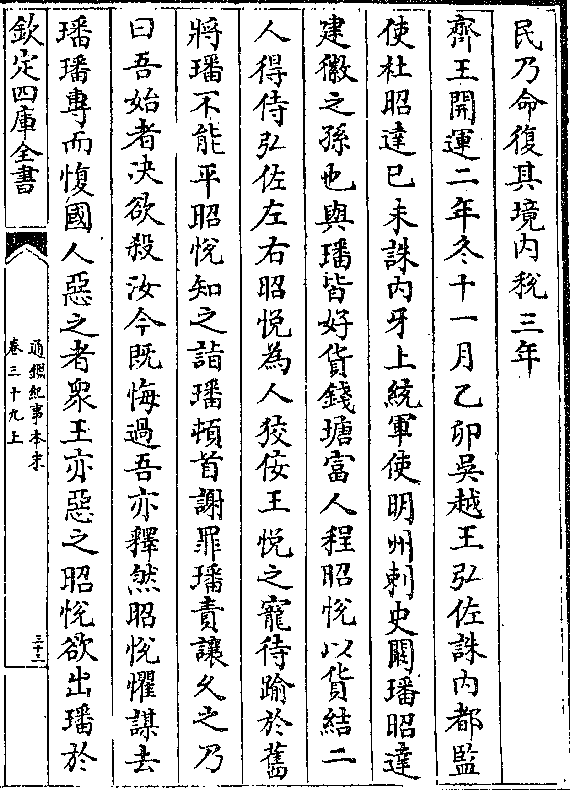 民乃命復其境内税三年
齊王開運二年冬十一月乙卯吳越王弘佐誅内都監
使杜昭達己未誅内牙上統軍使明州刺史闞璠昭達
建徽之孫也與璠皆好貨錢塘富人程昭悅以貨結二
人得侍弘佐左右昭悅為人狡佞王悅之寵待踰於舊
將璠不能平昭悅知之詣璠頓首謝罪璠責讓久之乃
曰吾始者決欲殺汝今既悔過吾亦釋然昭悅懼謀去
璠璠專而愎國人惡之者衆王亦惡之昭悅欲出璠於
欽定四庫全書
通鑑紀事本末
卷三十九上
三十二